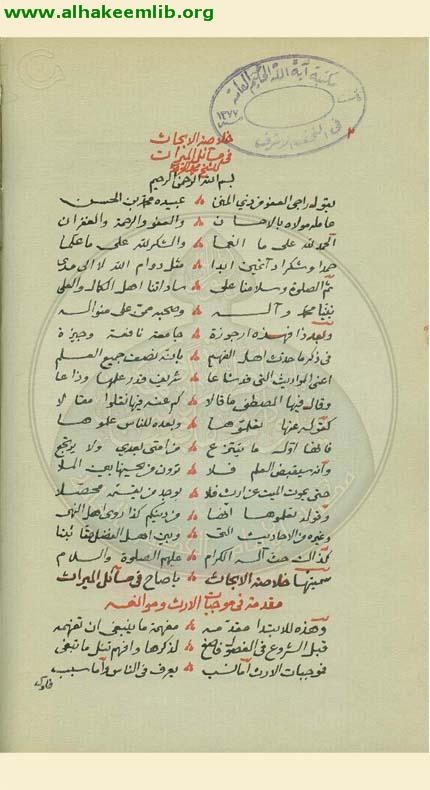 www.alhakeemlib.org
مكتبة آية الله الحكيم العامة
١٣٧٧
في النجف الاشرف
٢
خلاصة الابحاث
في مسائل الميراث
بسم الله الرحمن الرحيم
يقول راجي العفو من ذي المنن عبيده محمد بن الحسن
عامله مولاه بالاحسان والعفو والرحمة والغفران
الحمد لله على ما انعما والشكر لله على ما علما
حمدا وشكرا دائمين ابدا مثل دوام الله لا الى مدى
ثم الصلوة وسلامنا على ساداتنا اهل الكمال والعلى
نبينا محمد وآله وصحبه ممن على منواله
وبعد ذا فهذه ارجوزة جامعة نافعة وجيزة
في ذكر ما حدث اهل الفهم بانه لنصف جميع العلم
اعني المواريث التي قد شاعا شريف قدر علمها وذاعا
وقال فيها المصطفى ما قالا كم عنه فيها نقلوا مقالا
كقوله عنها تعلموها وبعده للناس علموها
فانها اول ما ينتزع من امتي بعدي ولا يرتجع
وانه سيقبض العلم فلا ترون من يحييها بين الملا
حتى يموت الميت عن ارث فلا يوجد من يقسمه محصلا
وقوله تعلموها ايضا من دينكم
وغيره من الاحاديث التي وبين اهل الفضل
كذاك حث آله الكرام عليهم الصلوة والسلام
سميتها خلاصة الابحاث يا صاح في مسائل الميراث
مقدمة في موجبات الارث وموانعه
وهذه للابتدا مقدمه مفهمة ما ينبغي ان تفهمه
قبل الشروع في الفصول فاصغ لذكرها وافهم تنل ما تبتغي
فموجبات الارث اما نسب يعرف في الناس واما سبب